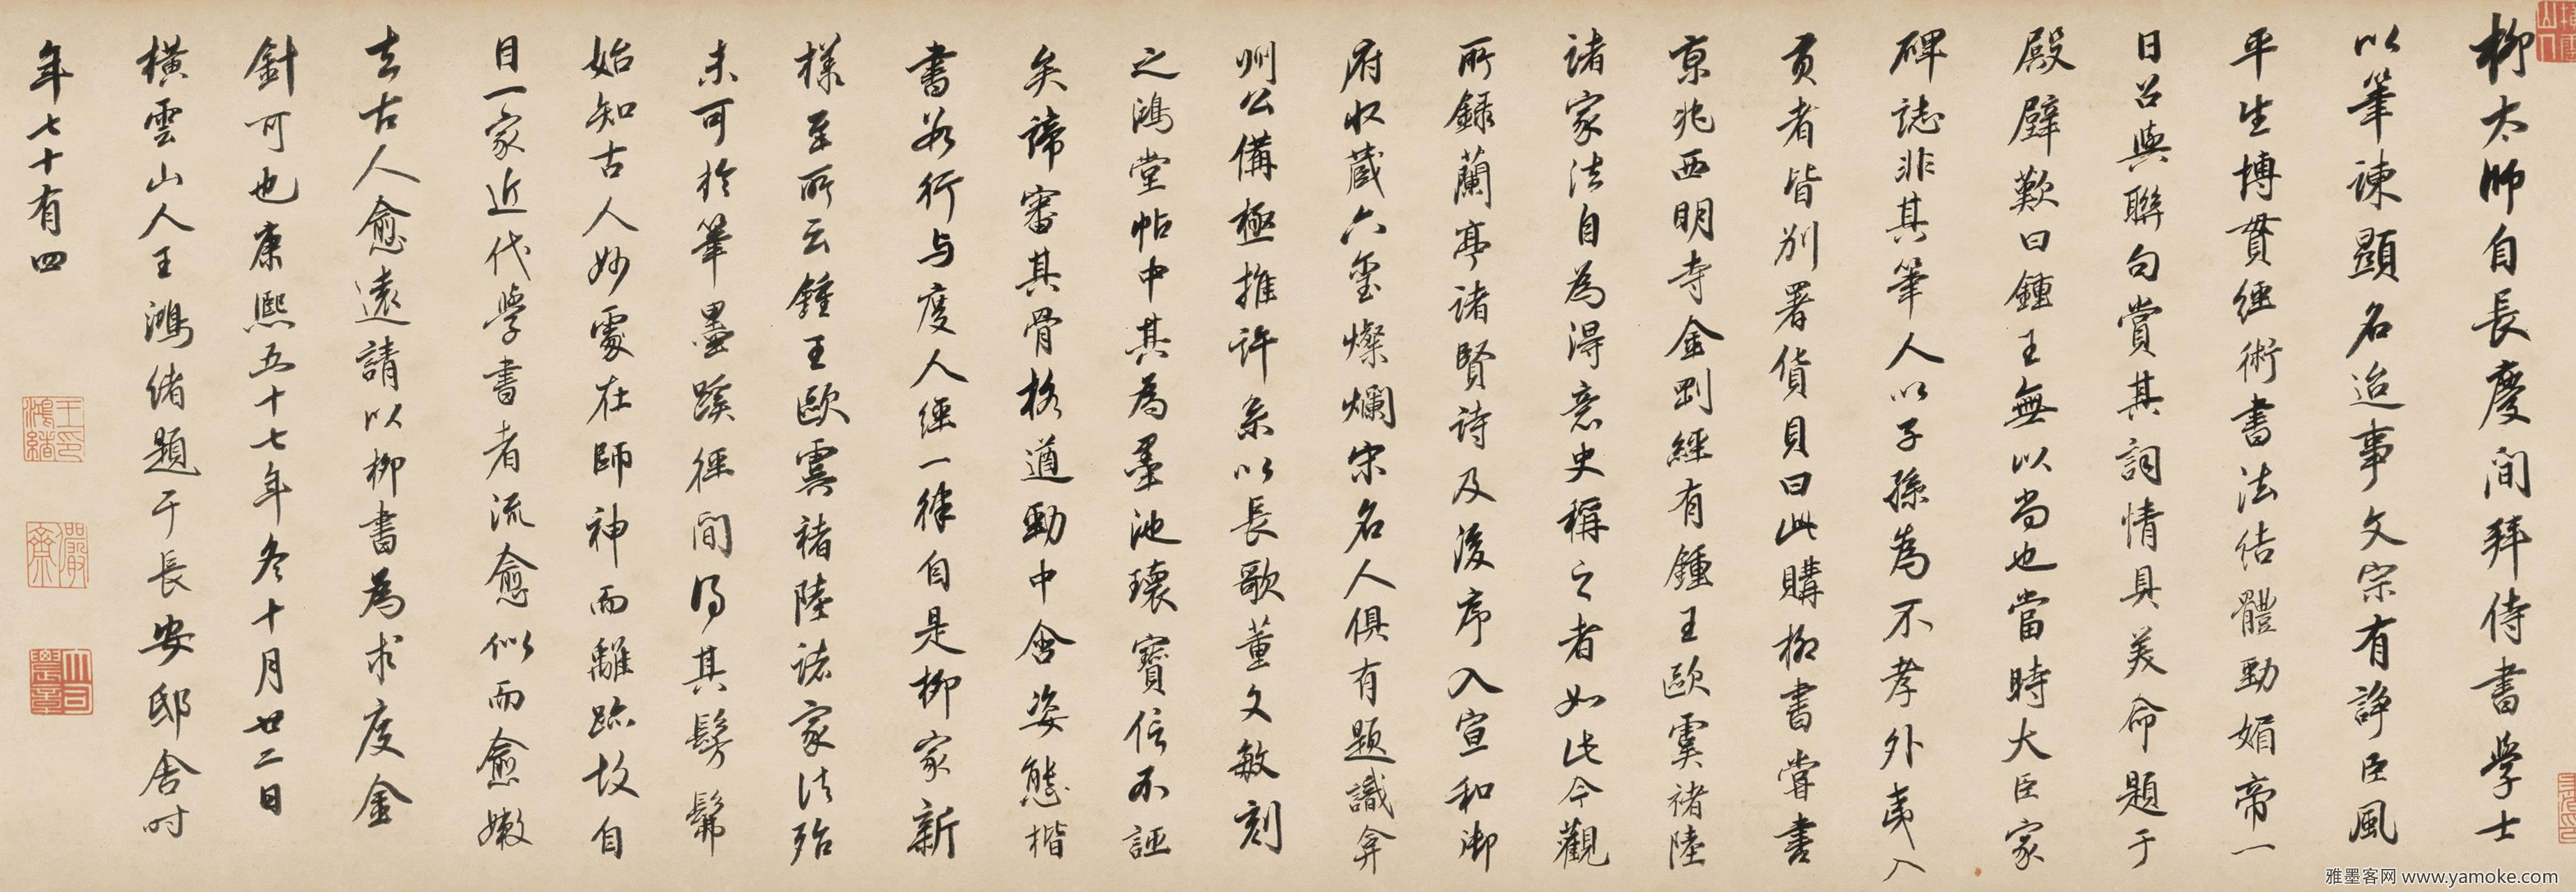 柳太師自長慶間拜侍書學士
以筆諫顯名迨事文宗有諍臣風
平生博貫經術書法结體勁媚帝一
日召與聯句賞其詞情具美命題于
殿壁歎曰鍾王無以尚也當時大臣家
碑誌非其筆人以子孫為不孝外夷入
貢者皆別署貨貝曰此購柳書嘗書
京兆西明寺金剛經有鍾王歐虞褚陸
諸家法自為得意史稱之者如此今觀
所録蘭亭諸賢詩及後序入宣和御
府收蔵六璽燦爛宋名人俱有題識弇
州公備極推许系以長歌董文敏刻
之鴻堂帖中其為墨池瓌寶信不誣
矣諦審其骨格遒勁中含姿態楷
書若行与度人經一律自是柳家新
樣至所云鍾王歐虞褚陸諸家法殆
未可於筆墨蹊徑間得其髣髴
始知古人妙處在師神而離跡故自
目一家近代學書者流愈似而愈嫩
去古人愈遠請以柳書為求度金
針可也康熙五十七年冬十月廿二日
横雲山人王鴻緒題于長安邸舍时
年七十有四
王鴻緒印
儼齋
大司農章
雅墨客网 www.yamoke.com